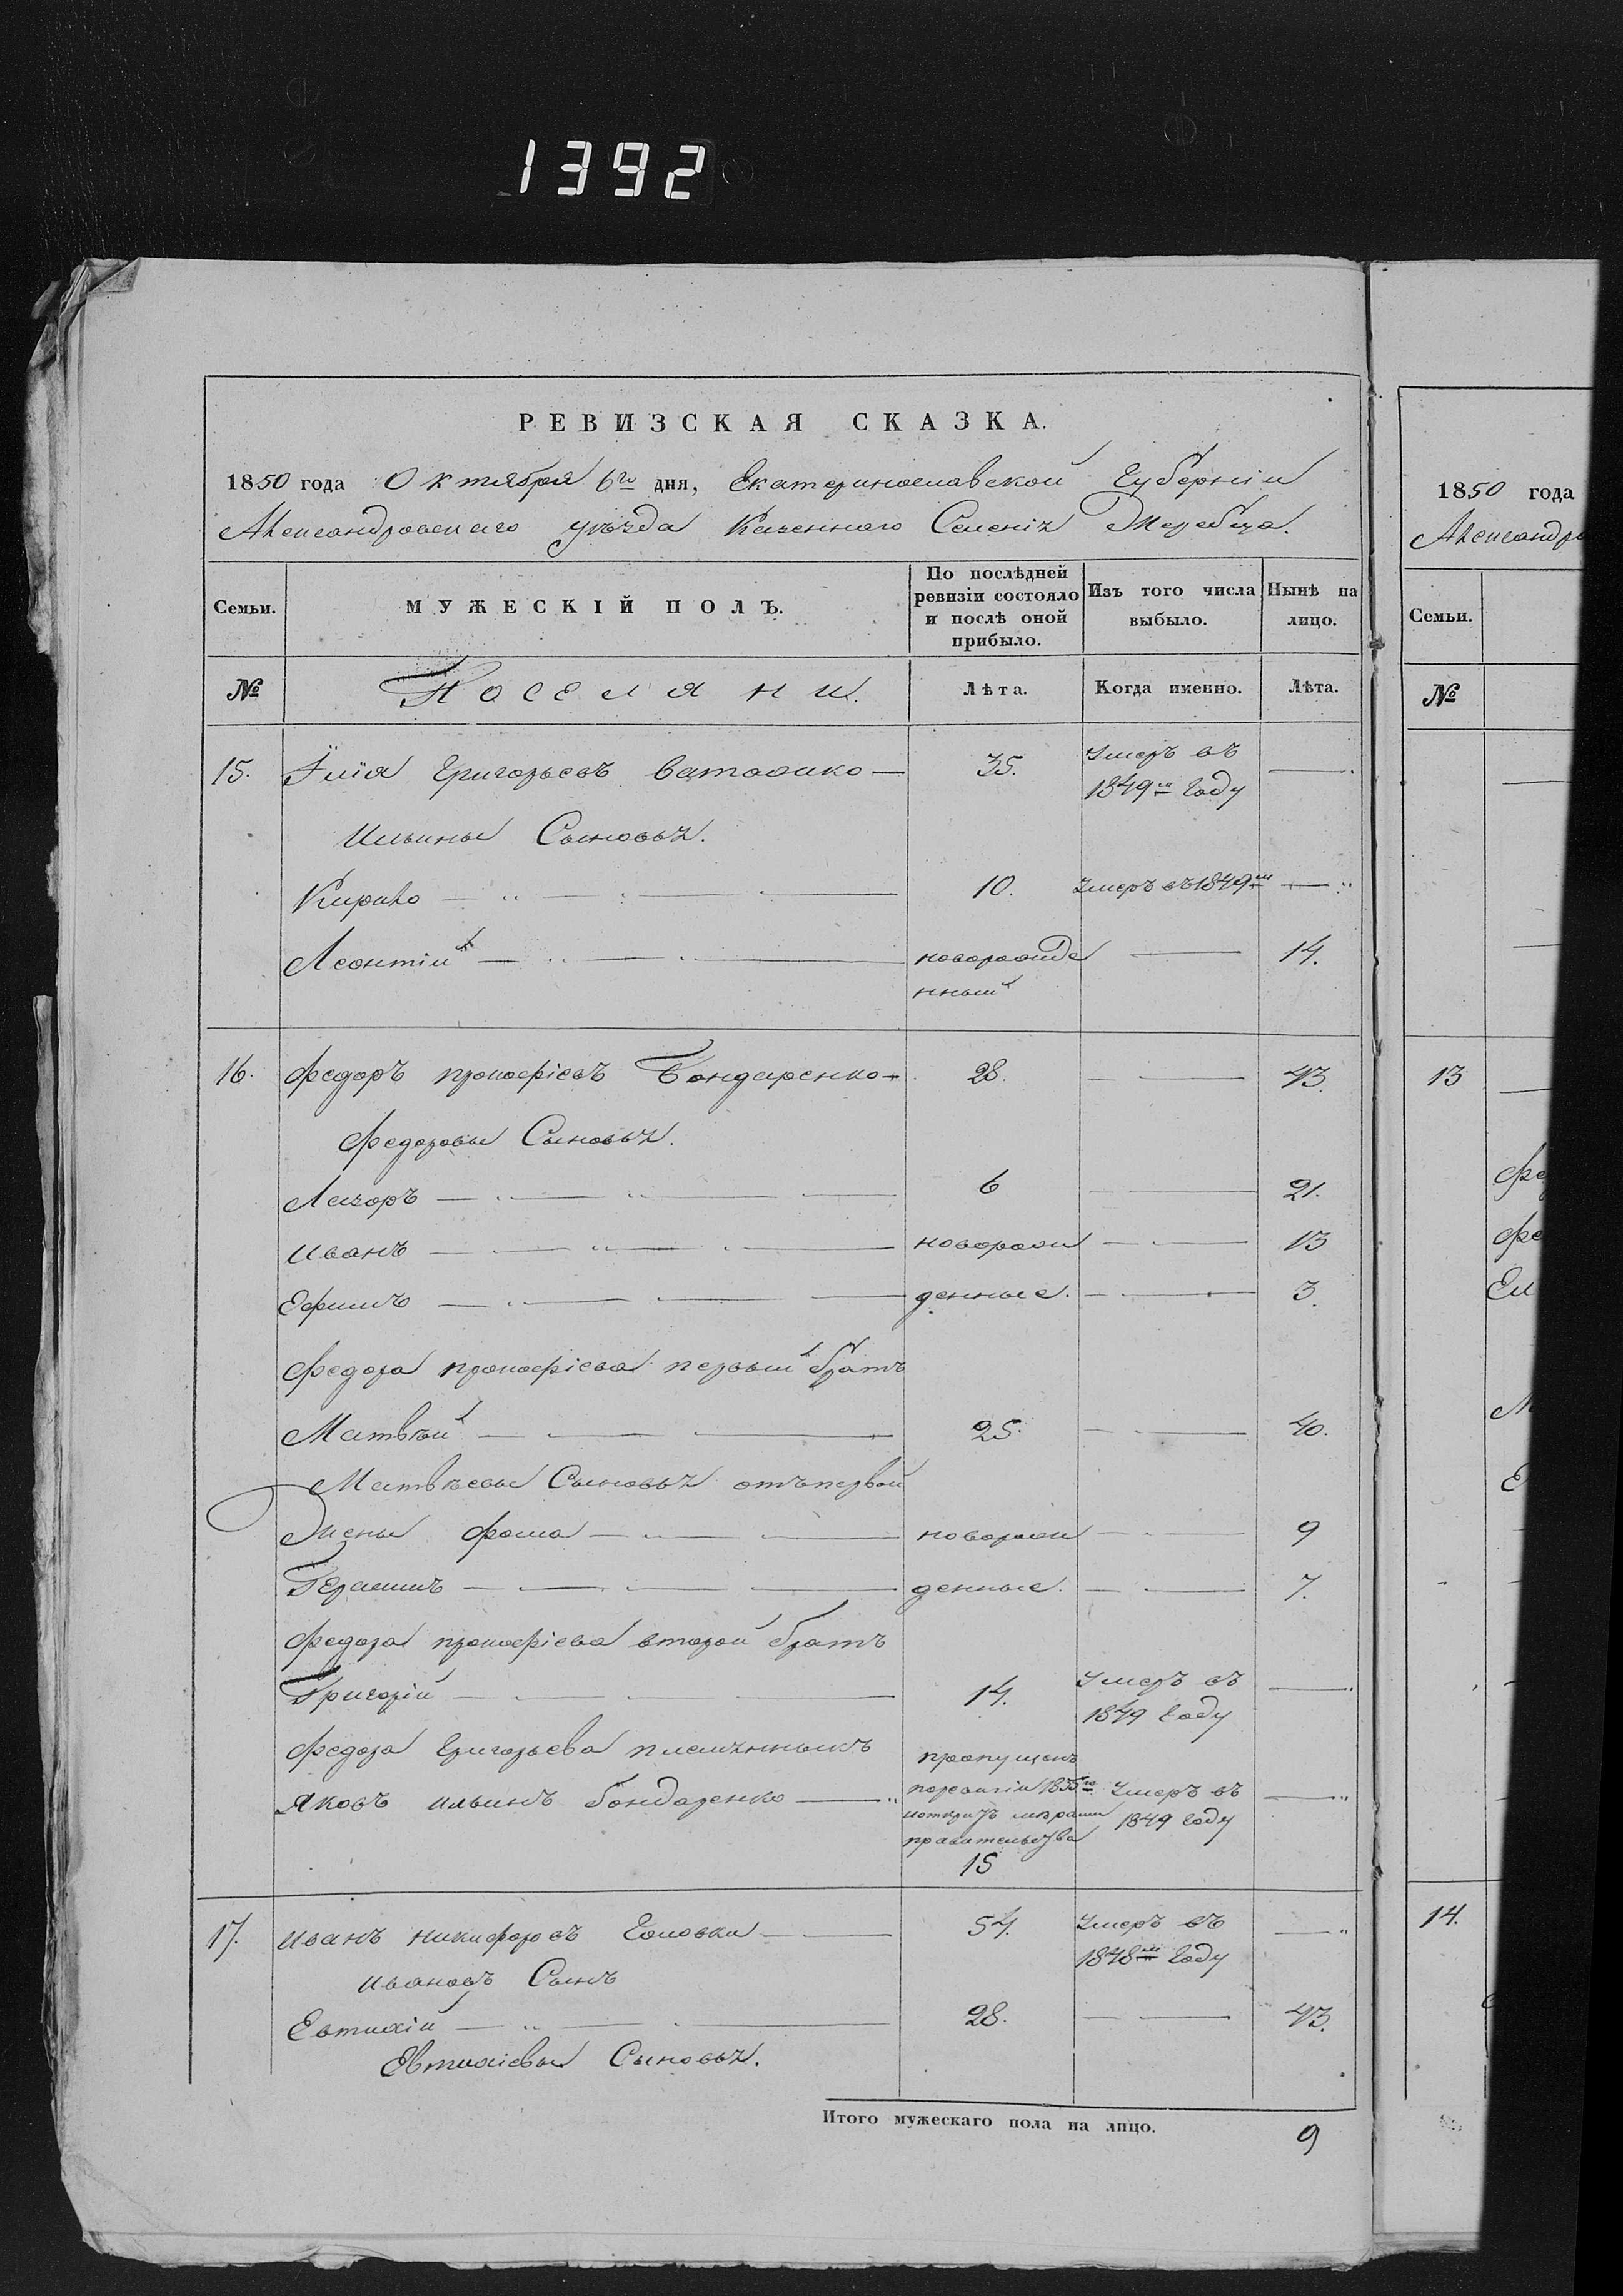 1392
РЕВИЗСКАЯ СКАЗКА.
1850 года Октября 6го дня, Екатеринославской Губерніи
Александровскаго уѣзда Казеннаго Селенія Жеребца.
Семьи. МУЖЕСКІЙ ПОЛЪ. По послѣдней ревизіи состояло и послѣ оной прибыло. Изъ того числа выбыло. Нынѣ на лицо.
№ Поселяни. Лѣта. Когда именно. Лѣта.
15. Илія Григорьевъ 35. Умеръ въ 1849м Году —
Ильины Сыновья.
Кирило — 10. Умеръ въ 1849м —
Леонтій — новорожде
нный — 14.
16. Федоръ Прокофіевъ Бондаренко 28. — 43.
Федоровы Сыновья.
Лазоръ — 6 — 21.
Иванъ — новорож — 13
Ефимъ — денные. — 3.
Федора Прокофіева первый братъ
Матвѣй — 25. — 40.
Матвѣевы Сыновья отъ первой
Жены Фома — новорож — 9
Герасимъ — денные. — 7.
Федора Прокофіева второй братъ
Григорій — 14. Умеръ въ 1849 Году —
Федора Григорьева племянныкъ
Яковъ Ильинъ Бондаренко — пропущенъ
по ревизіи 1835го
мѣрами
правительства
15 Умеръ въ 1849 Году —
17. Иванъ Никифоровъ Головко — 54. Умеръ въ 1848м Году —
Ивановъ Сынъ
Евтихій — 28. — 43.
Евтихіевы Сыновья.
Итого мужескаго пола на лицо. 9
1850 года
Александро
Семьи.
№
13
Фе
Фе
14.